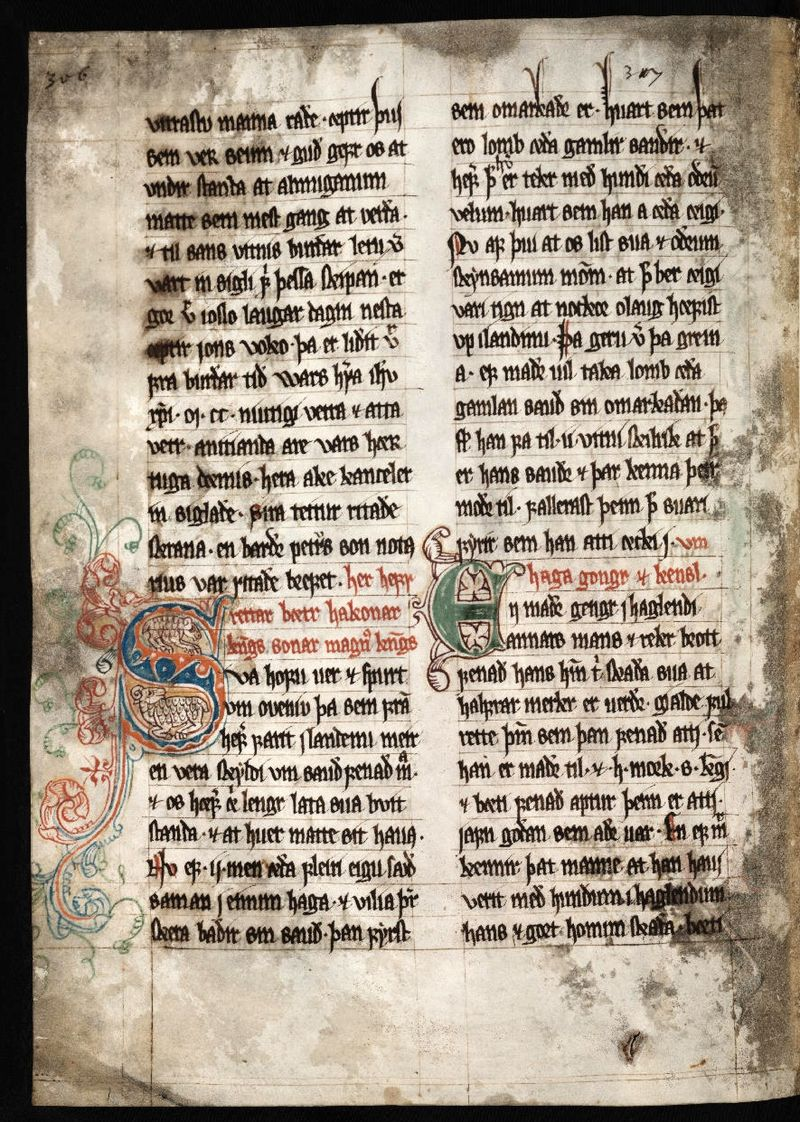 306
307
vitrastu manna rade · eptir þui
sem ver seim ⁊ gud gefr os at
vndir standa at almuganum
mætte sem mest gang at verda ·
⁊ til sans vitnis bindar letu v̅
vart in sigli f̅ þessa skipan · er
gor v̅ i oslo laugar dagin nesta
eptir jons voko · þa er lidit v̅
fra burdar tid wars h̅ra ih̅u
xp̅i · m · cc · niutigi vetra ⁊ atta
vetr · anttanda are vars hœk
niga dœmis · hera ake kanceler
in siglade · sira teitur ritade
skrana · en bardr petrs son nota
rius var ritade brefet · her hefr
rettar bœtr hakonar
kings sonar magn9 kongs
Sva hofu uer ⁊ spurt
vm oveniu þa sem fra̅
hef̅ farit j landenu meir
en vera skyldi vm saud fenad m̅
⁊ os hœf̅ ei lengr lata sua buit
standa · ⁊ at huer mætte sit haua ·
Nu ef · ij · men æda flein eigu saud
saman j einum haga · ⁊ vilia þr̅
skera badir sin saud · þan fyrst
sem omarkade er · huart sem þat
ero lomb æda gamlir saudir · ⁊
hef̅ þ̅ er teker med hundi æda odru̅
velum · huart sem han a æda eigi ·
Nu af þui at os list sua ⁊ odrum
skynsamum mo̅m · at þ̅ ber eigi
vari tign at nockor olaug hœfist
vp islandinu · þa geru v̅ þa grein
a · ef madr uil taka lomb æda
gamlan saud sin omarkadan · þa
skal han fa til · ii · vitni skilrik at þ̅
er hans saudr ⁊ þar kenna þeir
modr til · fallerast þeim þ̅ suari
fyrir sem han atti ecki j · vm
haga gongr ⁊ kensl ·
En madr gengr j haglendi
annars mans ⁊ reker brott
fenad hans h̅m t̅ skada sua at
halfrar merker er uerdr · gialde ful
rette þm̅ sem þan fenad atti · se̅
han er madr til · ⁊ h · mœrk · s · k̅gi ·
⁊ bœti fenad aptur þeim er atti ·
jafn godan sem adr uar · En ef m̅
kennir þat manne at han haui
verit med hundum i haglendum
hans ⁊ gort honum skada · bœti